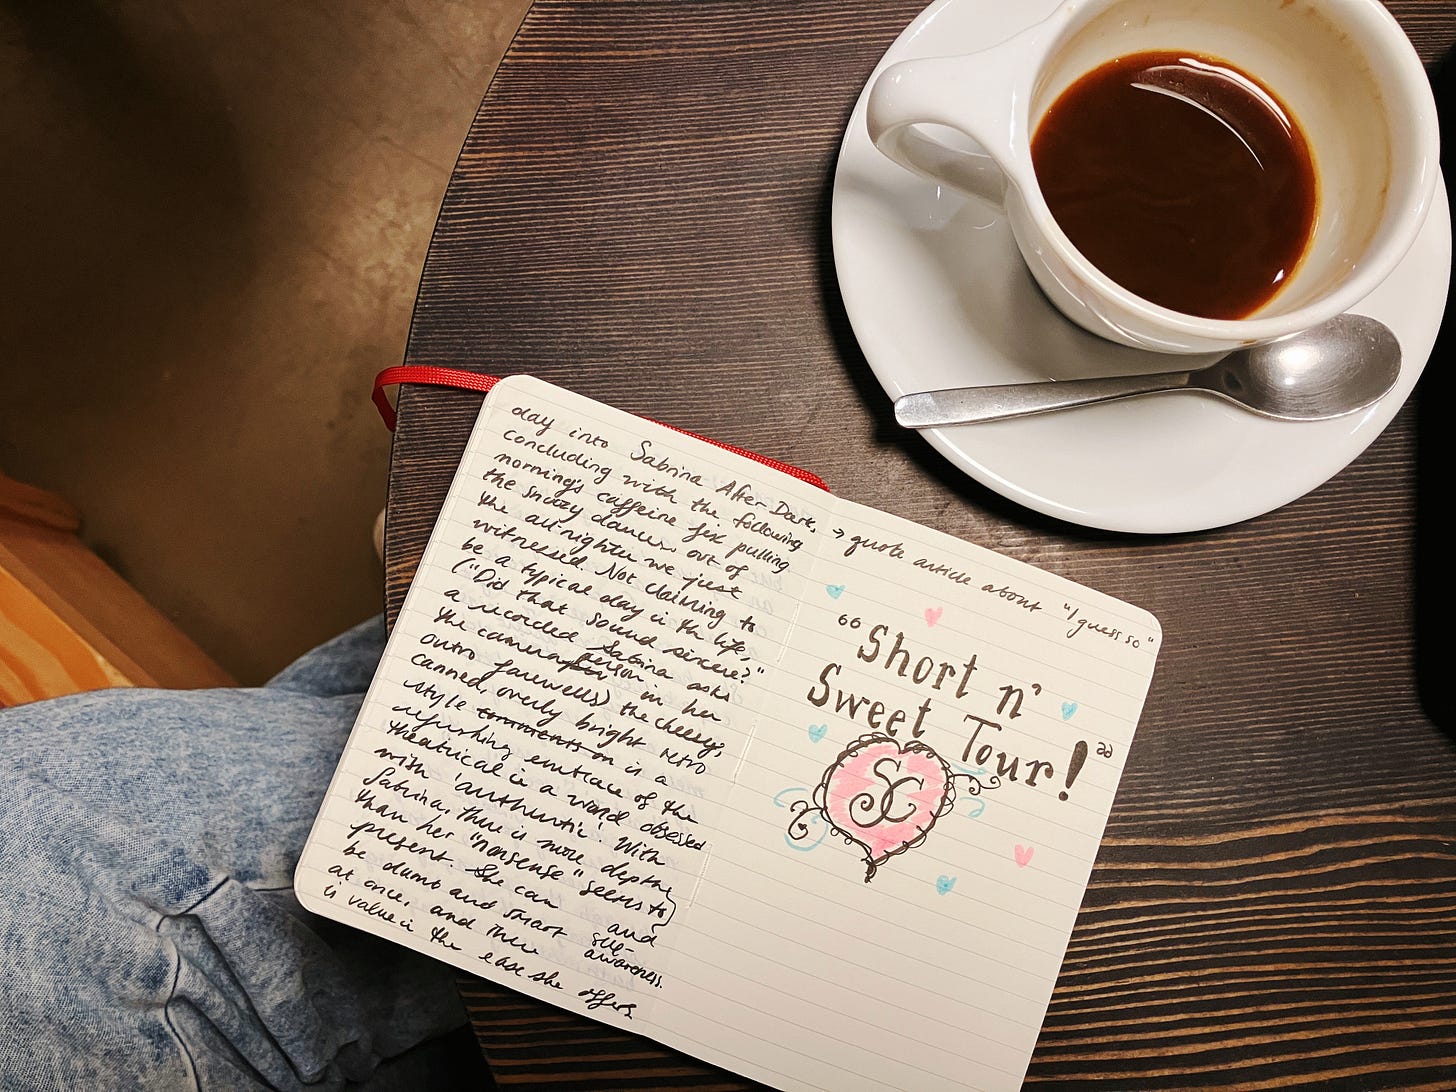 day into Sabrina After Dark,
concluding with the following
morning's caffeine fix pulling
the snoozy dancers out of
the all-nighter we just
witnessed. Not claiming to
be a typical day in the life,
("Did that sound sincere?"
a recorded Sabrina asks
the camera person in her
outro farewells) the cheery,
canned, overly bright retro
style comments on is a
refreshing embrace of the
theatrical in a world obsessed
with 'authentic'. With
Sabrina, there is more depth
than her "nonsense" seems to
present. She can and
be dumb and smart self-
at once, and there awareness.
is value in the
ease she offers
→ quote article about "I guess so"
"Short n'
Sweet Tour!"
SC